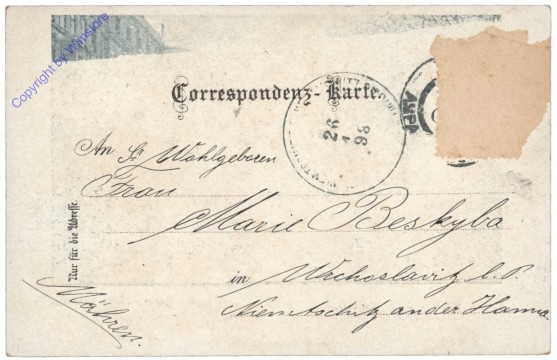 Copyright by Wanstore
Correspondenz-Karte.
26
1
98
An Sr Wohlgeboren
Frau
Marie Beskyba
in Wrchoslavitz b. P.
Niemtschitz an der Hanna.
Nur für die Adresse.
Mähren.